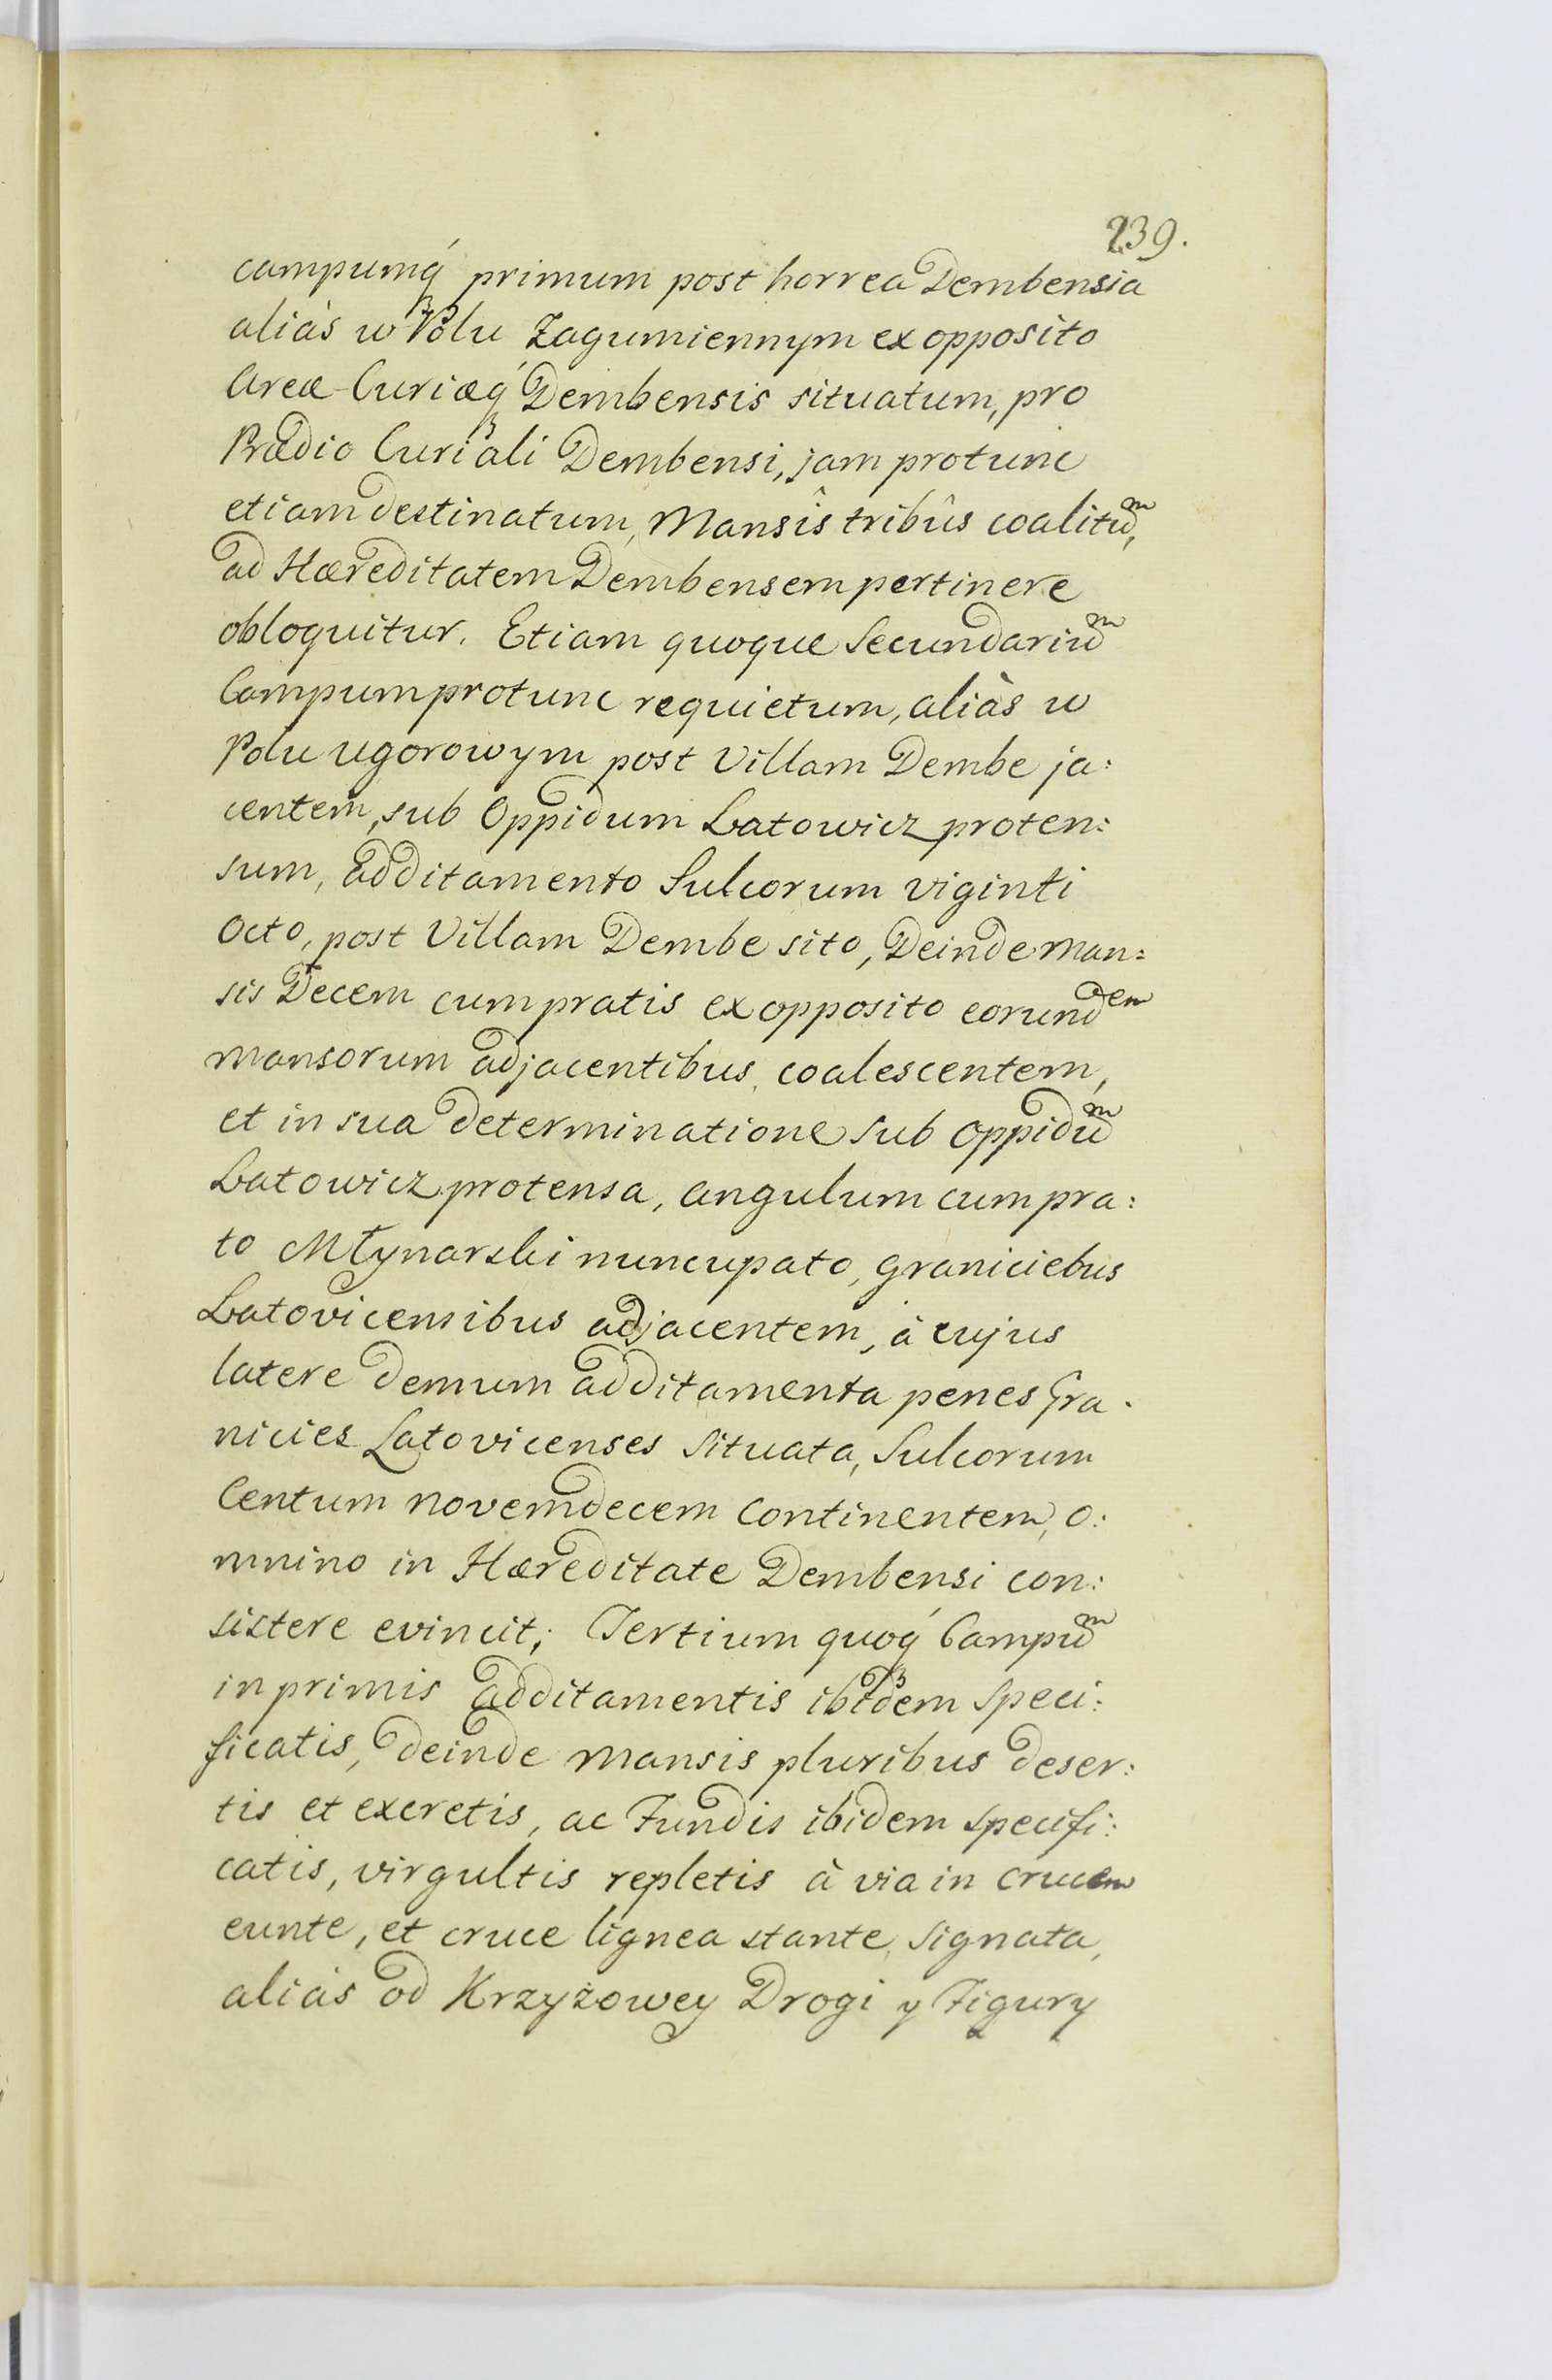 239.
campumq́ primum post horrea Dembensia
aliàs w Polu Zagumiennym ex opposito
Areæ Curiæq́ Dembensis situatum, pro
Prædio Curiali Dembensi, jam protunc
etiam destinatum, Mansîs tribûs coalituᵐ,
ad Hæreditatem Dembensem pertinere
obloquitur. Etiam quoque Secundariuᵐ
Campum protunc requietum, aliàs w
Polu Ugorowym post Villam Dembe ja:
centem, sub Oppidum Latowicz proten:
sum, additamento Sulcorum viginti
Octo, post Villam Dembe sito, Deinde Man:
sis Decem cum pratis ex opposito eorundᵉᵐ
Mansorum adjacentibus, coalescentem,
et in sua determinatione sub Oppiduᵐ
Latowicz protensa, Angulum cum pra:
to Młynarski nuncupato, Graniciebus
Latovicensibus adjacentem, à cujus
latere demum additamenta penes Gra:
nicies Latovicenses Situata, Sulcorum
Centum novemdecem Continentem, o:
mnino in Hæreditate Dembensi con:
sistere evincit; Tertium quoq́ Campuᵐ
in primis additamentis ibidem Speci:
ficatis, deinde Mansis pluribus deser:
tis et excretis, ac Fundis ibidem specifi:
catis, virgultis repletis à via in crucem
eunte, et cruce lignea stante, Signata,
aliàs od Krzyżowey Drogi y Figury